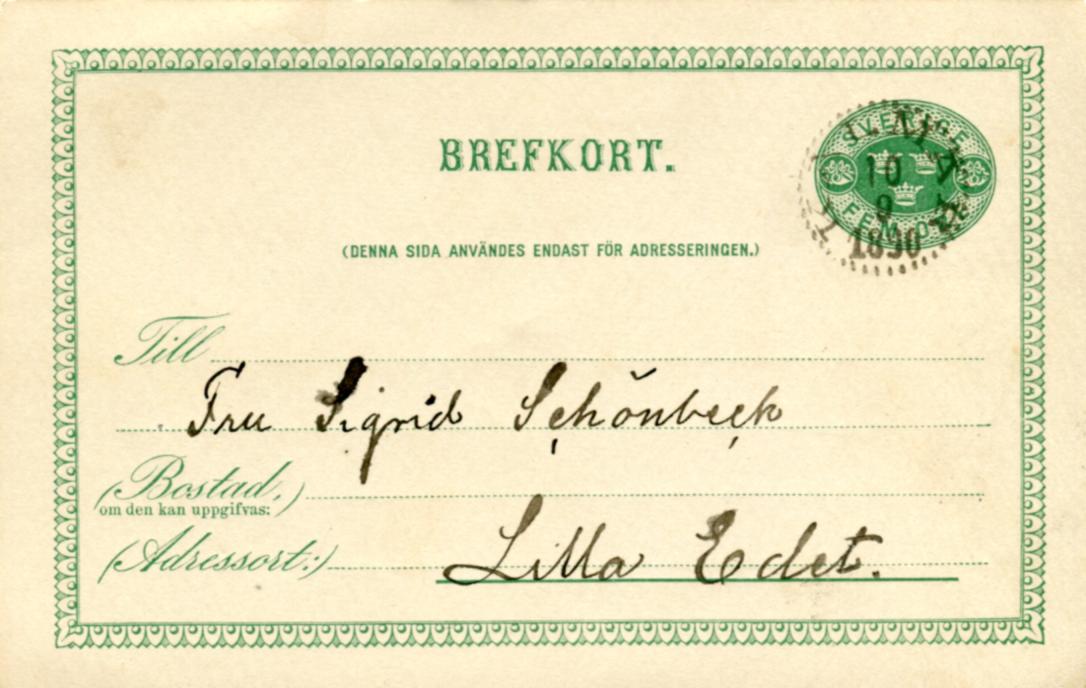 SVERIGE
10
9
1890
FEM ÖRE
BREFKORT.
(DENNA SIDA ANVÄNDES ENDAST FÖR ADRESSERINGEN.)
Till
Fru Sigrid Schönbeck
(Bostad,)
om den kan uppgifvas:
(Adressort:)
Lilla Edet.